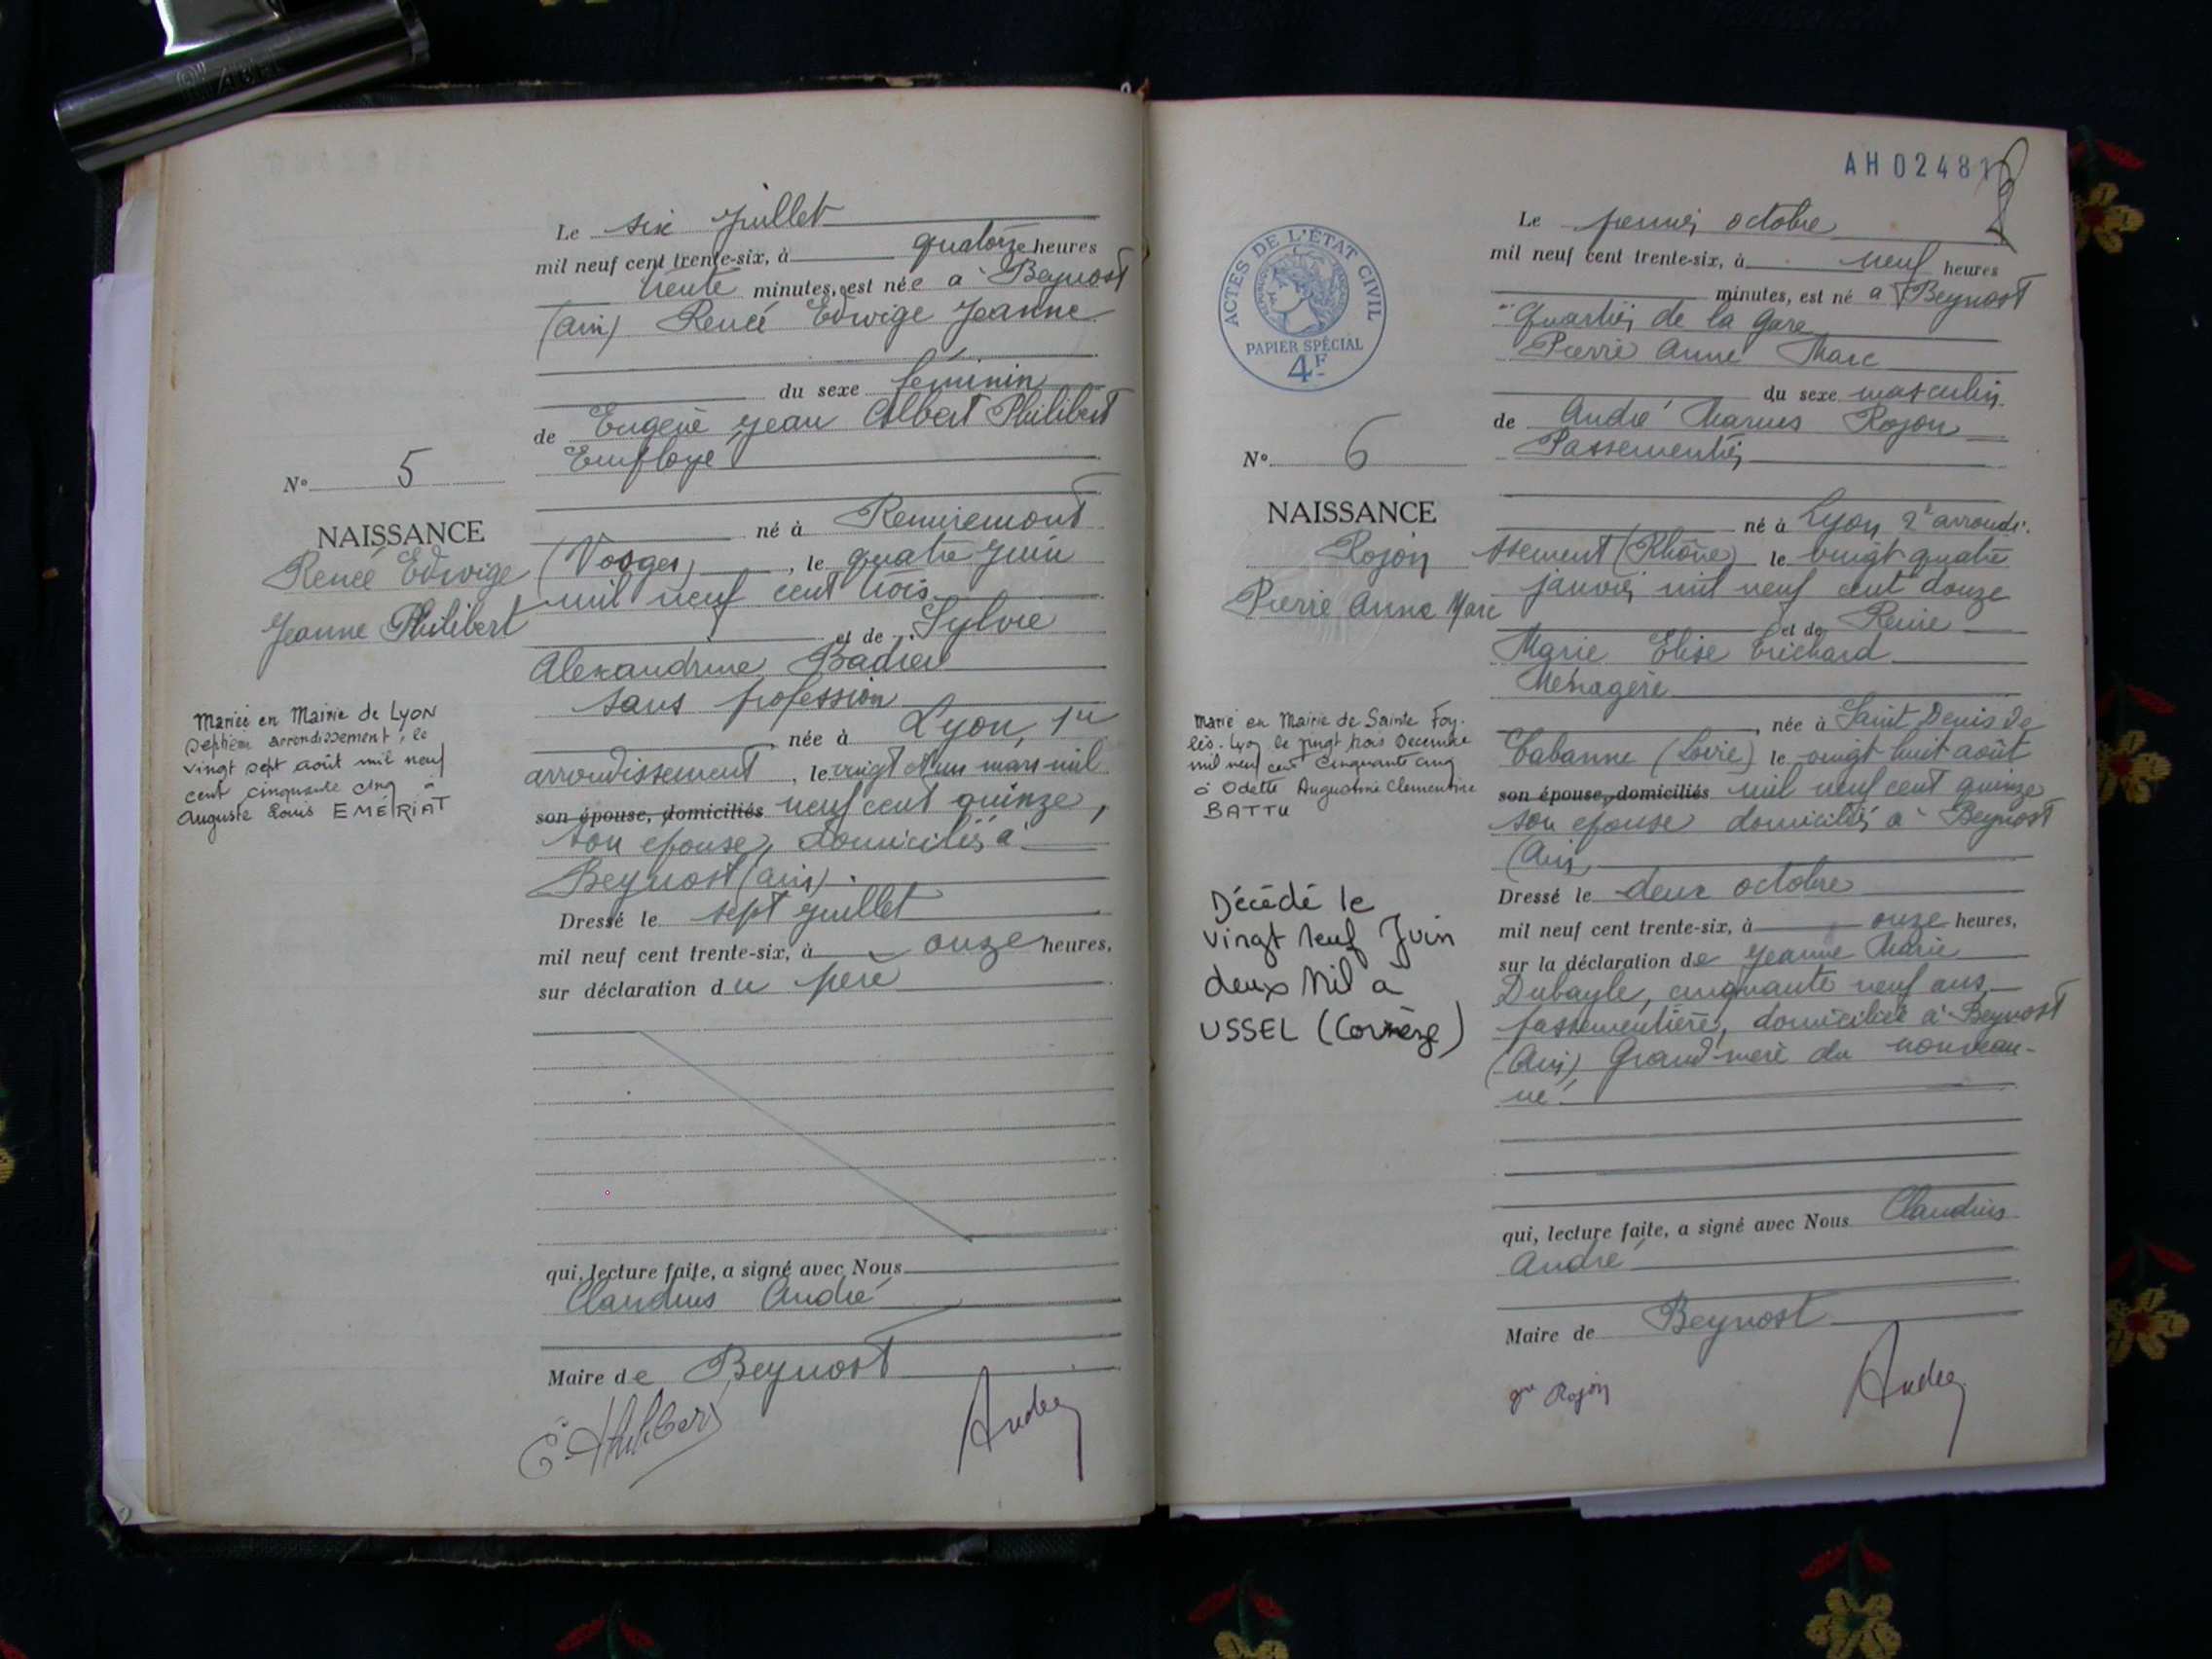 Le six juillet
mil neuf cent trente-six, à quatorze heures
trente minutes, est née à Beynost
(Ain) Renée Edwige Jeanne
du sexe féminin
de Eugène Jean Albert Philibert
Employé
N° 5
né à Remiremont
NAISSANCE
Renée Edwige
Jeanne Philibert
(Vosges), le quatre juin
mil neuf cent trois
et de Sylvie
Alexandrine Badieu
sans profession
née à Lyon, 1er
arrondissement, le vingt et un mars mil
son épouse, domiciliés neuf cent quinze,
son épouse, domiciliés à
Beynost (Ain).
Mariée en Mairie de LYON
septième arrondissement, le
vingt sept août mil neuf
cent cinquante cinq à
Auguste Louis EMÉRIAT
Dressé le sept juillet
mil neuf cent trente-six, à onze heures,
sur déclaration du père
qui, lecture faite, a signé avec Nous
Claudius André
Maire de Beynost
AH 0248
ACTES DE L'ÉTAT CIVIL
PAPIER SPÉCIAL
4F
Le premier octobre
mil neuf cent trente-six, à neuf heures
minutes, est né à Beynost
Quartier de la Gare
Pierre Anne Marc
du sexe masculin
de André Marius Rojon
Passementier
N° 6
NAISSANCE
Rojon
Pierre Anne Marc
né à Lyon 2e arrondi-
ssement (Rhône) le vingt quatre
janvier mil neuf cent douze
et de Reine
Marie Elise Trichard
Ménagère
née à Saint Denis de
Cabanne (Loire) le vingt huit août
son épouse, domiciliés mil neuf cent quinze
son épouse domiciliés à Beynost
(Ain)
Marié en Mairie de Sainte Foy-
lès-Lyon le vingt trois Décembre
mil neuf cent cinquante cinq
à Odette Augustine Clémentine
BATTU
Décédé le
vingt neuf Juin
deux Mil à
USSEL (Corrèze)
Dressé le deux octobre
mil neuf cent trente-six, à onze heures,
sur la déclaration de Jeanne Marie
Dubayle, cinquante neuf ans,
passementière, domiciliée à Beynost
(Ain) Grand-mère du nouveau-
né.
qui, lecture faite, a signé avec Nous Claudius
André
Maire de Beynost
Rojon